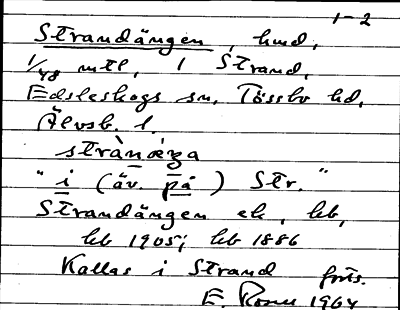 1-2
Strandängen, hmd,
1/48 mtl, i Strand,
Edsleskogs sn, Tössbo hd,
Älvsb. l.
strànæ̀ŋa
"i (äv. på) Str."
Strandängen ek, hb,
hb 1905; hb 1886
Kallas i Strand forts.
E. Rosell 1964